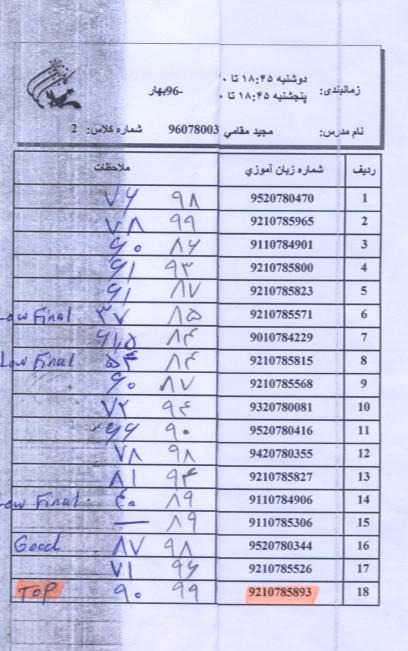 زمانبندی: دوشنبه ۱۸:۴۵ تا ۰ -96بهار
پنجشنبه ۱۸:۴۵ تا ۰
نام مدرس: مجید مقامی 96078003 شماره کلاس: 2
ردیف شماره زبان آموزي ملاحظات
1 9520780470 ۹۸ ۷۶
2 9210785965 ۹۹ ۷۸
3 9110784901 ۸۶ ۶۰
4 9210785800 ۹۳ ۶۱
5 9210785823 ۸۷ ۶۱
6 9210785571 ۸۵ ۳۷ Low Final
7 9010784229 ۸۴ ۶۱,۵
8 9210785815 ۸۴ ۵۴ Low Final
9 9210785568 ۸۷ ۶۰
10 9320780081 ۹۴ ۷۲
11 9520780416 ۹۰ ۶۶
12 9420780355 ۹۸ ۷۸
13 9210785827 ۹۴ ۸۱
14 9110784906 ۸۹ ۴۰ Low Final
15 9110785306 ۸۹ —
16 9520780344 ۹۸ ۸۷ Good
17 9210785526 ۹۶ ۷۱
18 9210785893 ۹۹ ۹۰ TOP